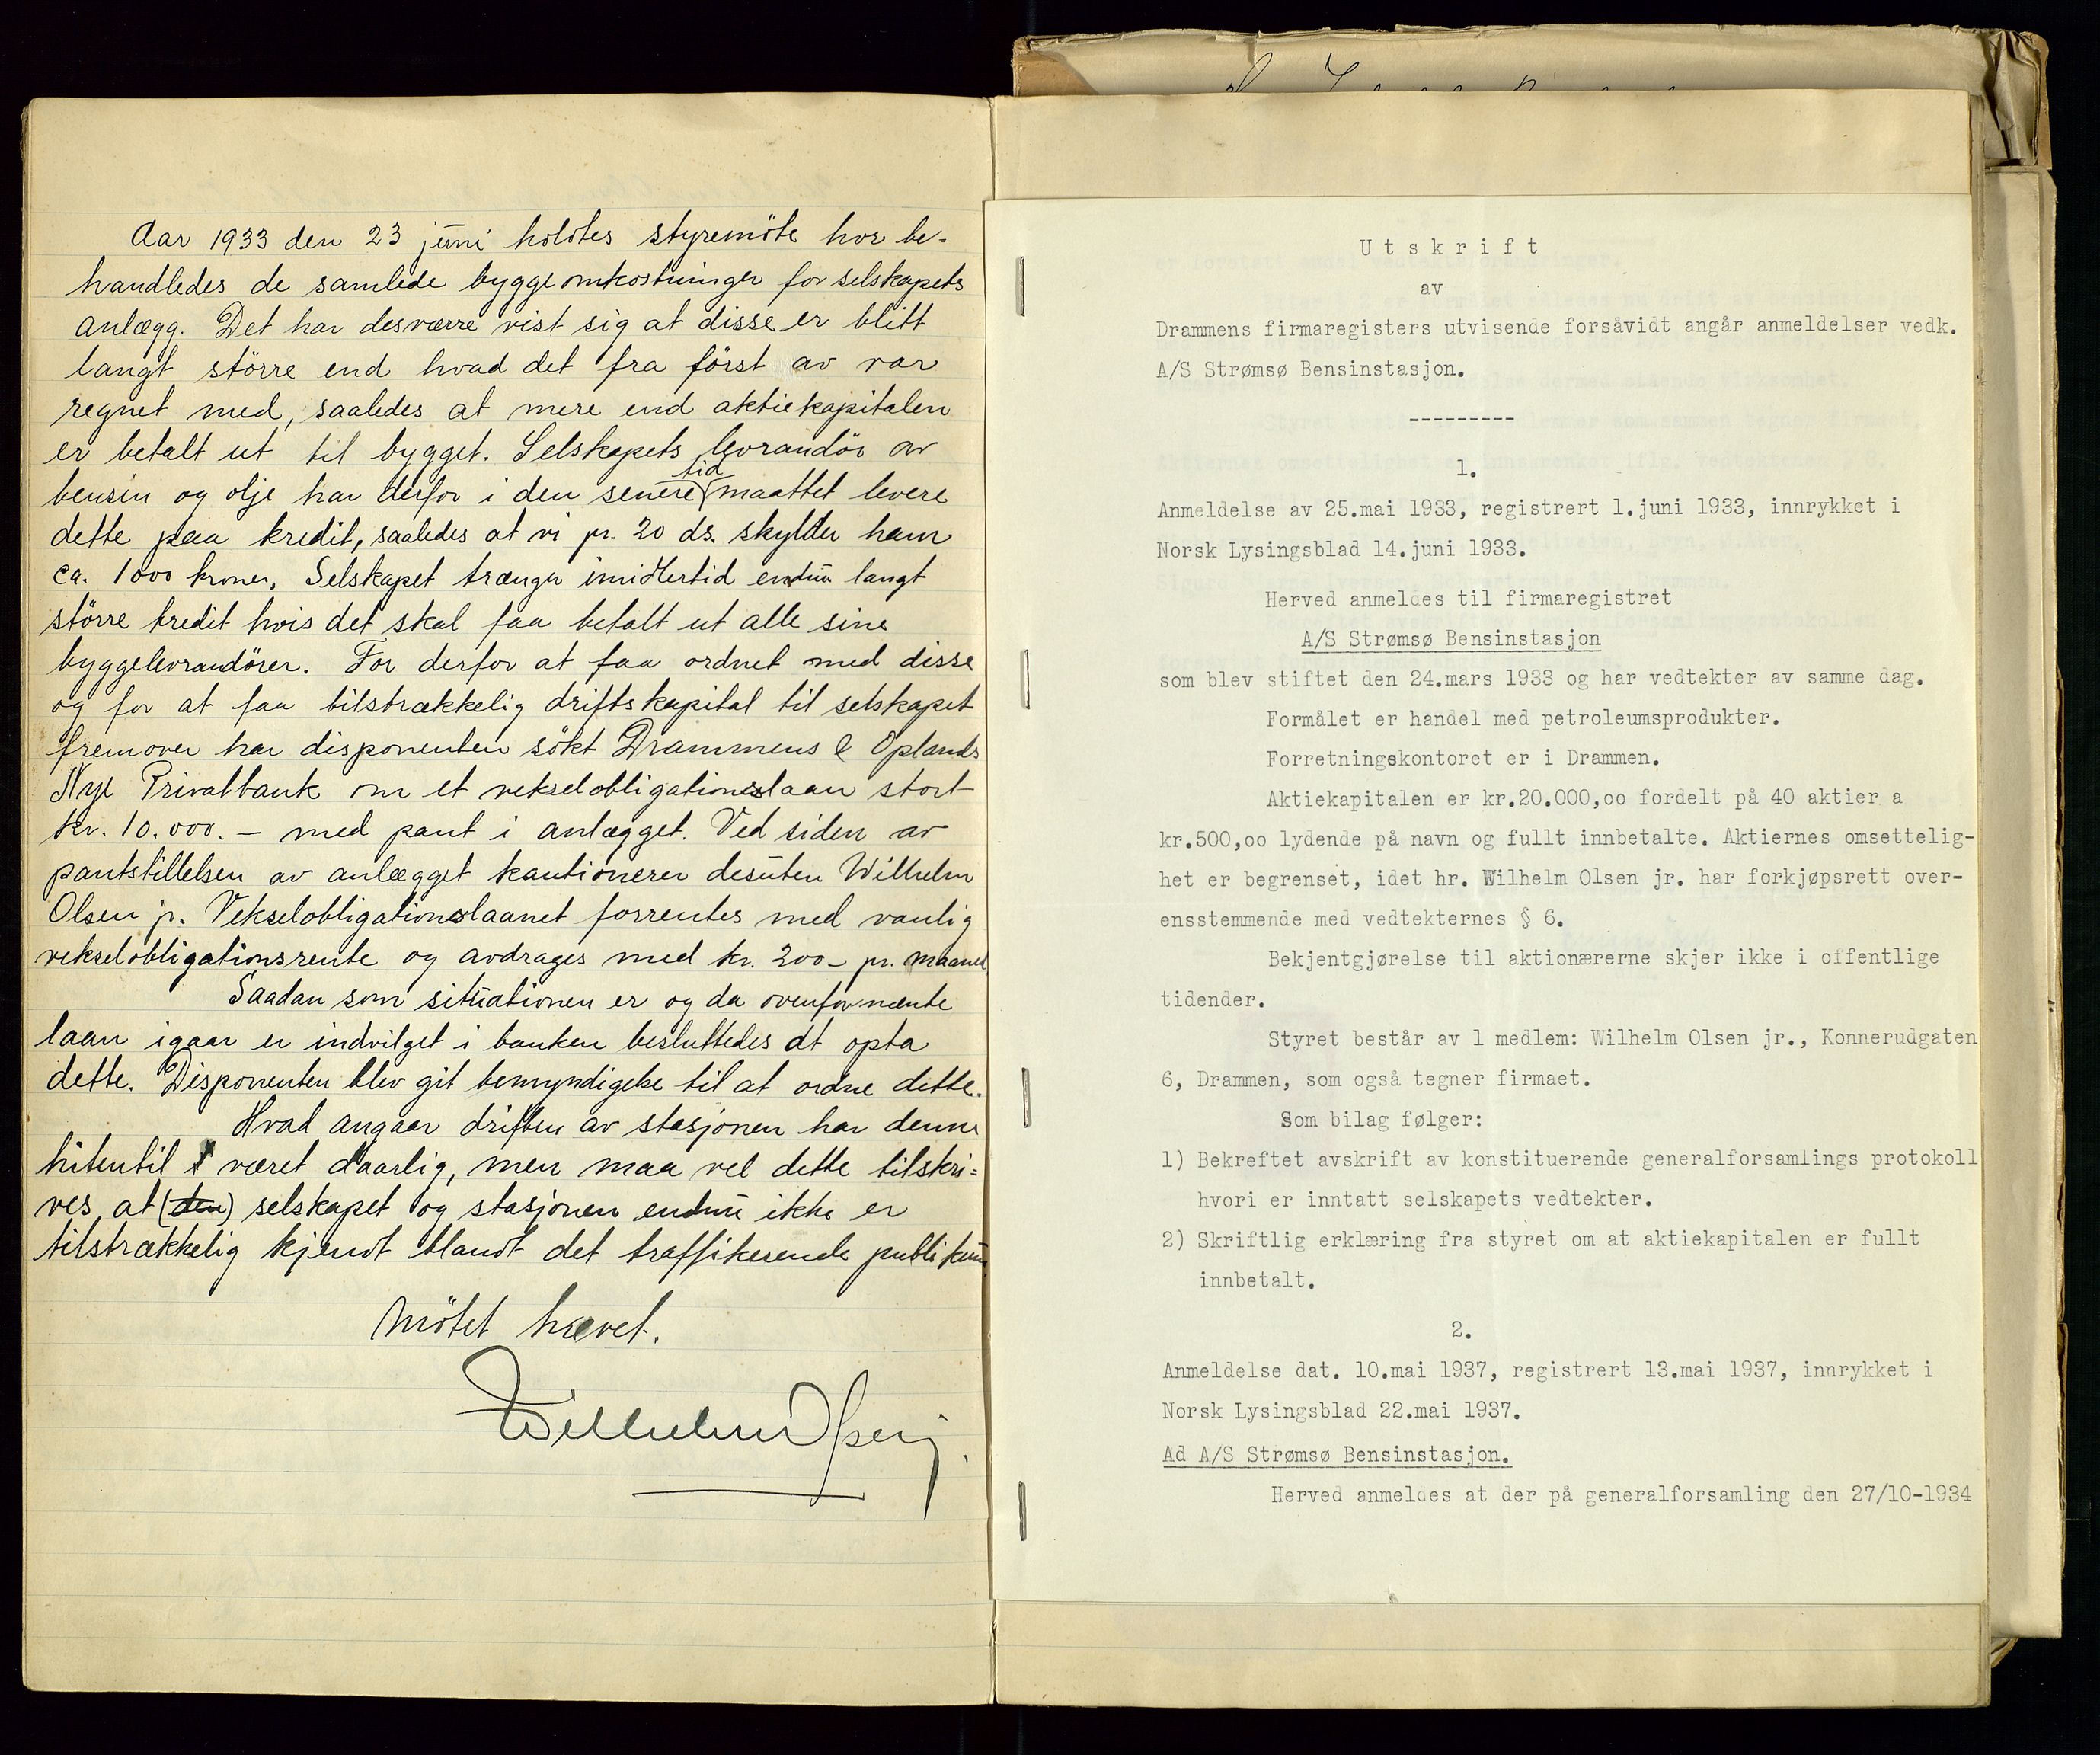 Aar 1933 den 23 juni holdtes styremöte hvor be-
handledes de samlede byggeomkostninger for selskapets
anlægg. Det har desværre vist sig at disse er blitt
langt större end hvad det fra först av var
regnet med, saaledes at mere end aktiekapitalen
er betalt ut til bygget. Selskapets levrandör av
bensin og olje har derfor i den senere tid maattet levere
dette paa kredit, saaledes at vi pr. 20 ds. skylder ham
ca. 1000 kroner. Selskapet trænger imidlertid endnu langt
större kredit hvis det skal faa betalt ut alle sine
byggelevrandörer. For derfor at faa ordnet med disse
og for at faa tilstrækkelig driftskapital til selskapet
fremover har disponenten sökt Drammens & Oplands
Nye Privatbank om et vekselobligationslaan stort
kr. 10.000.- med pant i anlægget. Ved siden av
pantstillelsen av anlægget kautionerer desuten Wilhelm
Olsen jr. Vekselobligationslaanet forrentes med vanlig
vekselobligationsrente og avdrages med kr. 200- pr. maaned
Saadan som situationen er og da ovenfornævnte
laan igaar er indvilget i banken besluttedes at opta
dette. Disponenten blev git bemyndigelse til at ordne dette.
Hvad angaar driften av stasjonen har denne
hitentil været daarlig, men maa vel dette tilskri=
ves at (den) selskapet og stasjonen endnu ikke er
tilstrækkelig kjendt blandt det traffikerende publikum.
Mötet hævet.
Wilhelm Olsen j.
Utskrift
av
Drammens firmaregisters utvisende forsåvidt angår anmeldelser vedk.
A/S Strømsø Bensinstasjon.
---------
1.
Anmeldelse av 25.mai 1933, registrert 1.juni 1933, innrykket i
Norsk Lysingsblad 14.juni 1933.
Herved anmeldes til firmaregistret
A/S Strømsø Bensinstasjon
som blev stiftet den 24.mars 1933 og har vedtekter av samme dag.
Formålet er handel med petroleumsprodukter.
Forretningskontoret er i Drammen.
Aktiekapitalen er kr.20.000,oo fordelt på 40 aktier a
kr.500,oo lydende på navn og fullt innbetalte. Aktiernes omsettelig-
het er begrenset, idet hr. Wilhelm Olsen jr. har forkjøpsrett over-
ensstemmende med vedtekternes § 6.
Bekjentgjørelse til aktionærerne skjer ikke i offentlige
tidender.
Styret består av 1 medlem: Wilhelm Olsen jr., Konnerudgaten
6, Drammen, som også tegner firmaet.
Som bilag følger:
1) Bekreftet avskrift av konstituerende generalforsamlings protokoll
hvori er inntatt selskapets vedtekter.
2) Skriftlig erklæring fra styret om at aktiekapitalen er fullt
innbetalt.
2.
Anmeldelse dat. 10.mai 1937, registrert 13.mai 1937, innrykket i
Norsk Lysingsblad 22.mai 1937.
Ad A/S Strømsø Bensinstasjon.
Herved anmeldes at der på generalforsamling den 27/10-1934